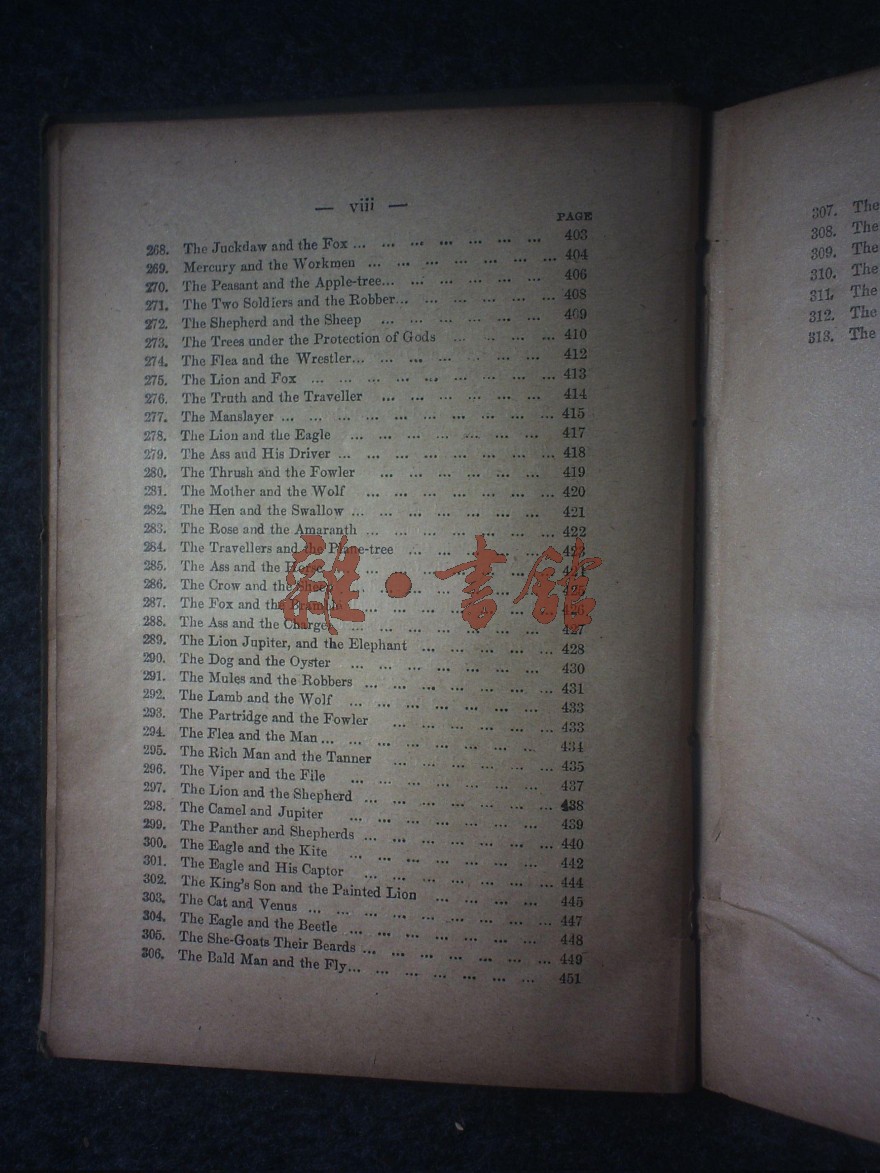 — viii —
PAGE
268. The Juckdaw and the Fox ... ... ... ... ... ... ... 403
269. Mercury and the Workmen ... ... ... ... ... ... ... 404
270. The Peasant and the Apple-tree... ... ... ... ... ... 406
271. The Two Soldiers and the Robber... ... ... ... ... ... 408
272. The Shepherd and the Sheep ... ... ... ... ... ... 409
273. The Trees under the Protection of Gods ... ... ... ... 410
274. The Flea and the Wrestler... ... ... ... ... ... ... 412
275. The Lion and Fox ... ... ... ... ... ... ... ... ... 413
276. The Truth and the Traveller ... ... ... ... ... ... 414
277. The Manslayer ... ... ... ... ... ... ... ... ... ... 415
278. The Lion and the Eagle ... ... ... ... ... ... ... 417
279. The Ass and His Driver ... ... ... ... ... ... ... ... 418
280. The Thrush and the Fowler ... ... ... ... ... ... 419
281. The Mother and the Wolf ... ... ... ... ... ... ... 420
282. The Hen and the Swallow ... ... ... ... ... ... ... 421
283. The Rose and the Amaranth ... ... ... ... ... ... ... 422
284. The Travellers and the Plane-tree ... ... ... ... ... 423
285. The Ass and the Horse ... ... ... ... ... ... ... 424
286. The Crow and the Sheep ... ... ... ... ... ... ... 425
287. The Fox and the Bramble ... ... ... ... ... ... ... 426
288. The Ass and the Charger ... ... ... ... ... ... ... 427
289. The Lion Jupiter, and the Elephant ... ... ... ... ... 428
290. The Dog and the Oyster ... ... ... ... ... ... ... 430
291. The Mules and the Robbers ... ... ... ... ... ... ... 431
292. The Lamb and the Wolf ... ... ... ... ... ... ... 433
293. The Partridge and the Fowler ... ... ... ... ... ... 433
294. The Flea and the Man ... ... ... ... ... ... ... ... 434
295. The Rich Man and the Tanner ... ... ... ... ... ... 435
296. The Viper and the File ... ... ... ... ... ... ... 437
297. The Lion and the Shepherd ... ... ... ... ... ... ... 438
298. The Camel and Jupiter ... ... ... ... ... ... ... 439
299. The Panther and Shepherds ... ... ... ... ... ... ... 440
300. The Eagle and the Kite ... ... ... ... ... ... ... 442
301. The Eagle and His Captor ... ... ... ... ... ... ... 444
302. The King's Son and the Painted Lion ... ... ... ... 445
303. The Cat and Venus ... ... ... ... ... ... ... ... ... 447
304. The Eagle and the Beetle ... ... ... ... ... ... ... 448
305. The She-Goats Their Beards ... ... ... ... ... ... ... 449
306. The Bald Man and the Fly... ... ... ... ... ... ... 451
307. The
308. The
309. The
310. The
311. The
312. The
313. The
雜·書館